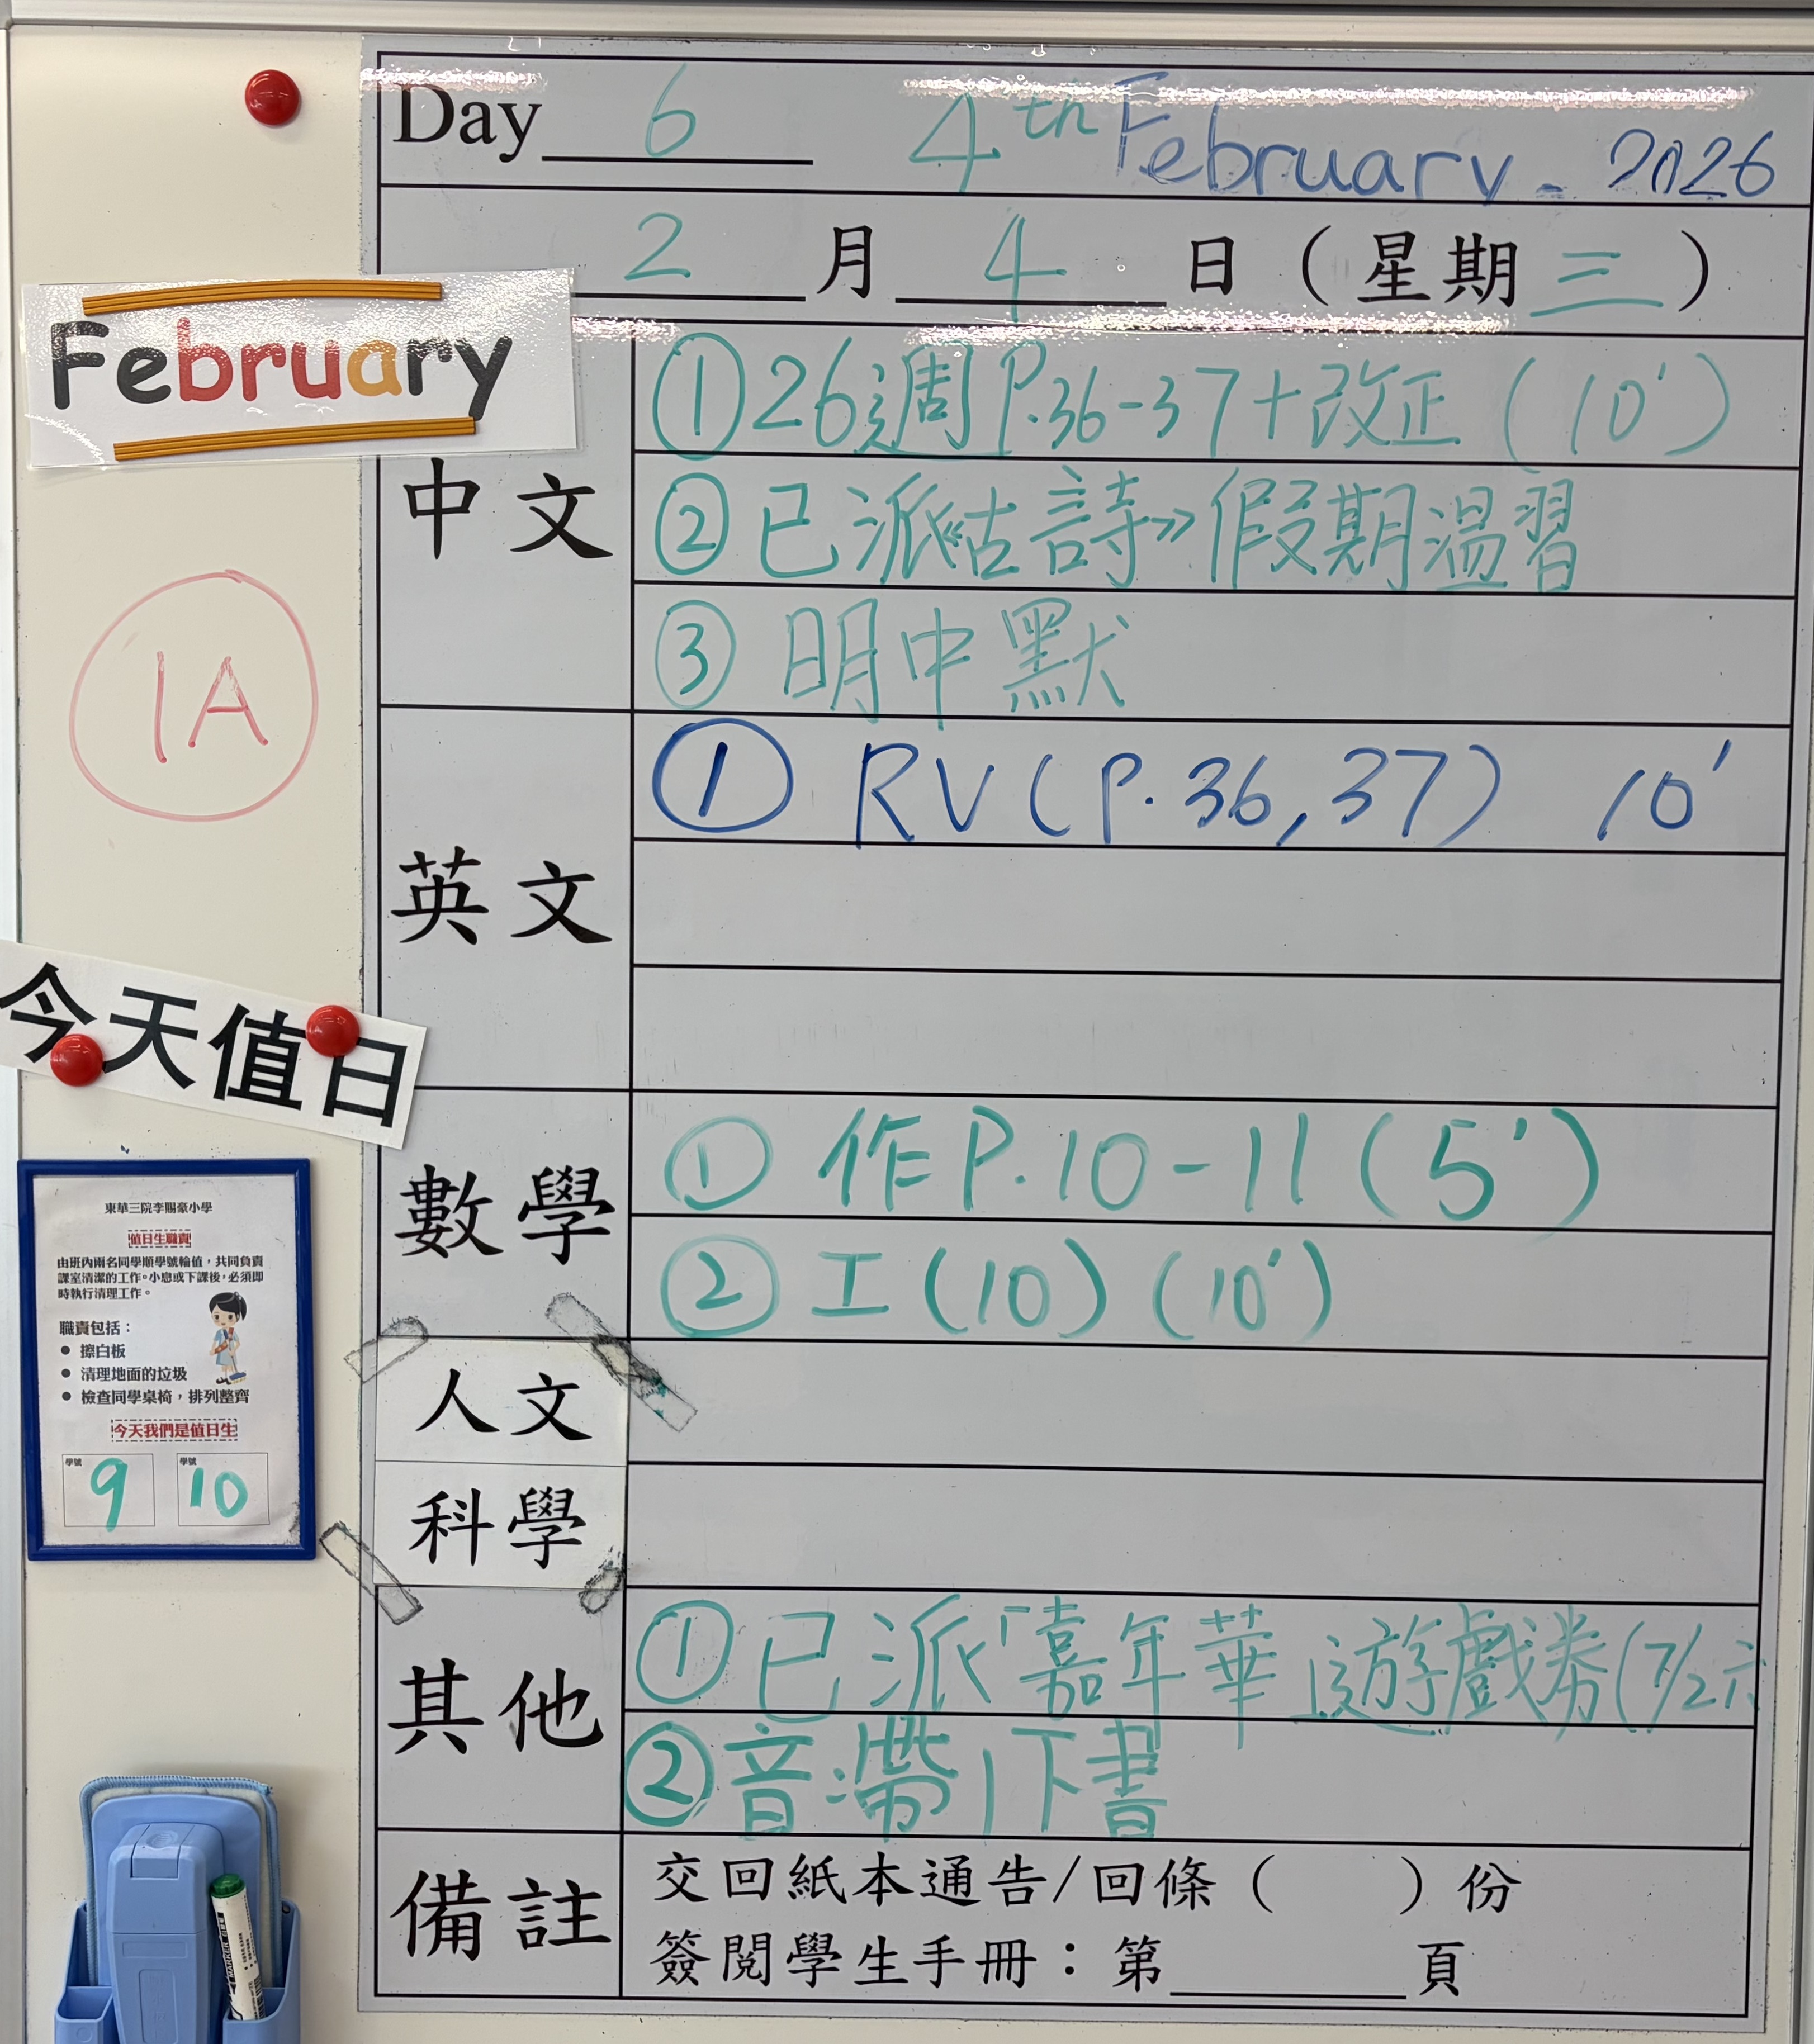 Day 6 4th February. 2026
2 月 4 日 (星期三)
February
中文
①26週P.36-37+改正(10')
②已派《古詩》假期溫習
③明中默
1A
英文
① RV(P.36,37) 10'
今天值日
數學
① 作P.10-11(5')
② 工(10)(10')
人文
科學
其他
①已派「嘉年華」遊戲券(7/2六
②音:帶1下書
備註
交回紙本通告/回條( )份
簽閱學生手冊:第 頁
東華三院李賜豪小學
值日生職責
由班內兩名同學順學號輪值,共同負責
課室清潔的工作。小息或下課後,必須即
時執行清理工作。
職責包括:
● 擦白板
● 清理地面的垃圾
● 檢查同學桌椅,排列整齊
今天我們是值日生
學號 9 學號 10
MARKER